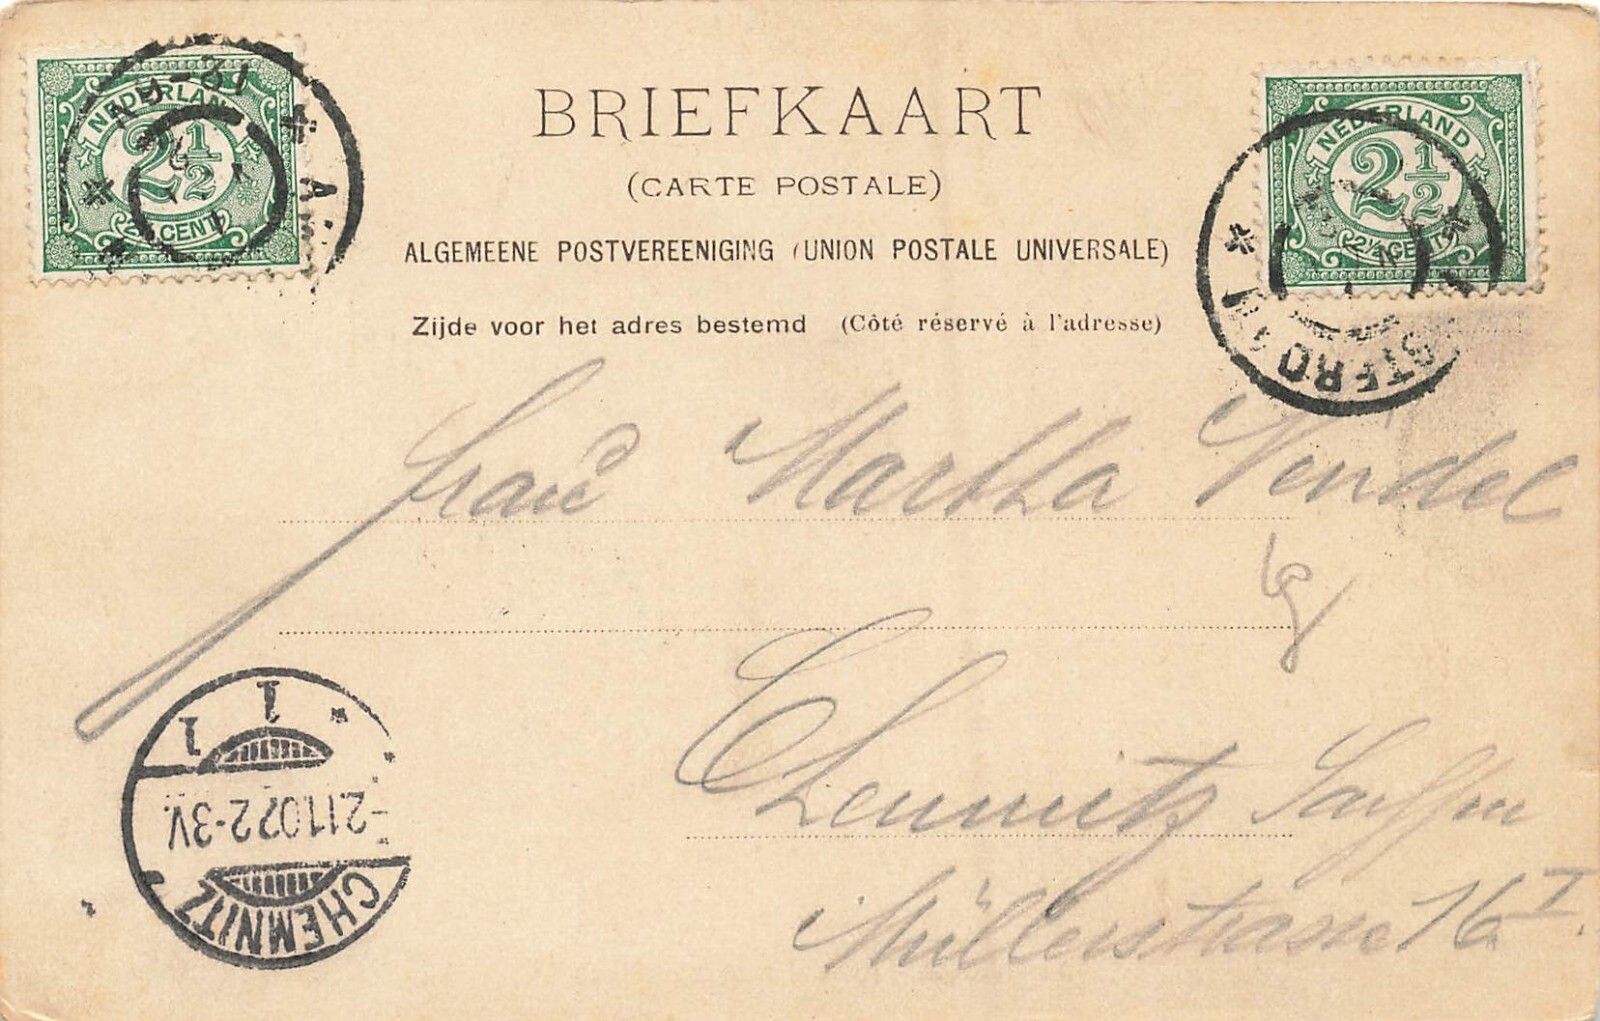 NEDERLAND
2 1/2
2 1/2 CENT
BRIEFKAART
(CARTE POSTALE)
ALGEMEENE POSTVEREENIGING (UNION POSTALE UNIVERSALE)
Zijde voor het adres bestemd (Côté réservé à l'adresse)
NEDERLAND
2 1/2
2 1/2 CENT
Frau Martha Vendel
Chemnitz Sachsen
Müllerstrasse 16 I.
CHEMNITZ
-2.11.02.2-3V.
1
1